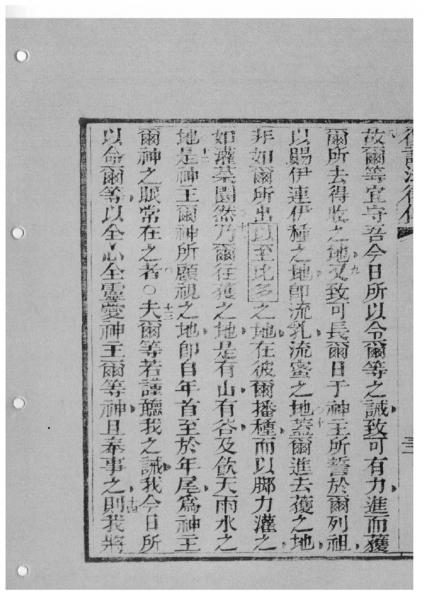 三
故爾等宜守吾今日所以令爾等之誡致可有力進而獲
爾所去得收之地九又致可長爾日于神王所誓於爾列祖
以賜伊連伊種之地即流乳流蜜之地十蓋爾進去獲之地
非如爾所出以至比多之地在彼爾播種而以腳力灌之
如灌菜園然十一乃爾往獲之地是有山有谷及飲天雨水之
地十二是神王爾神所顧視之地即自年首至於年尾爲神王
爾神之眼常在之者○十三夫爾等若謹聽我之誡我今日所
以命爾等以全心全靈愛神王爾等神且奉事之十四則我將